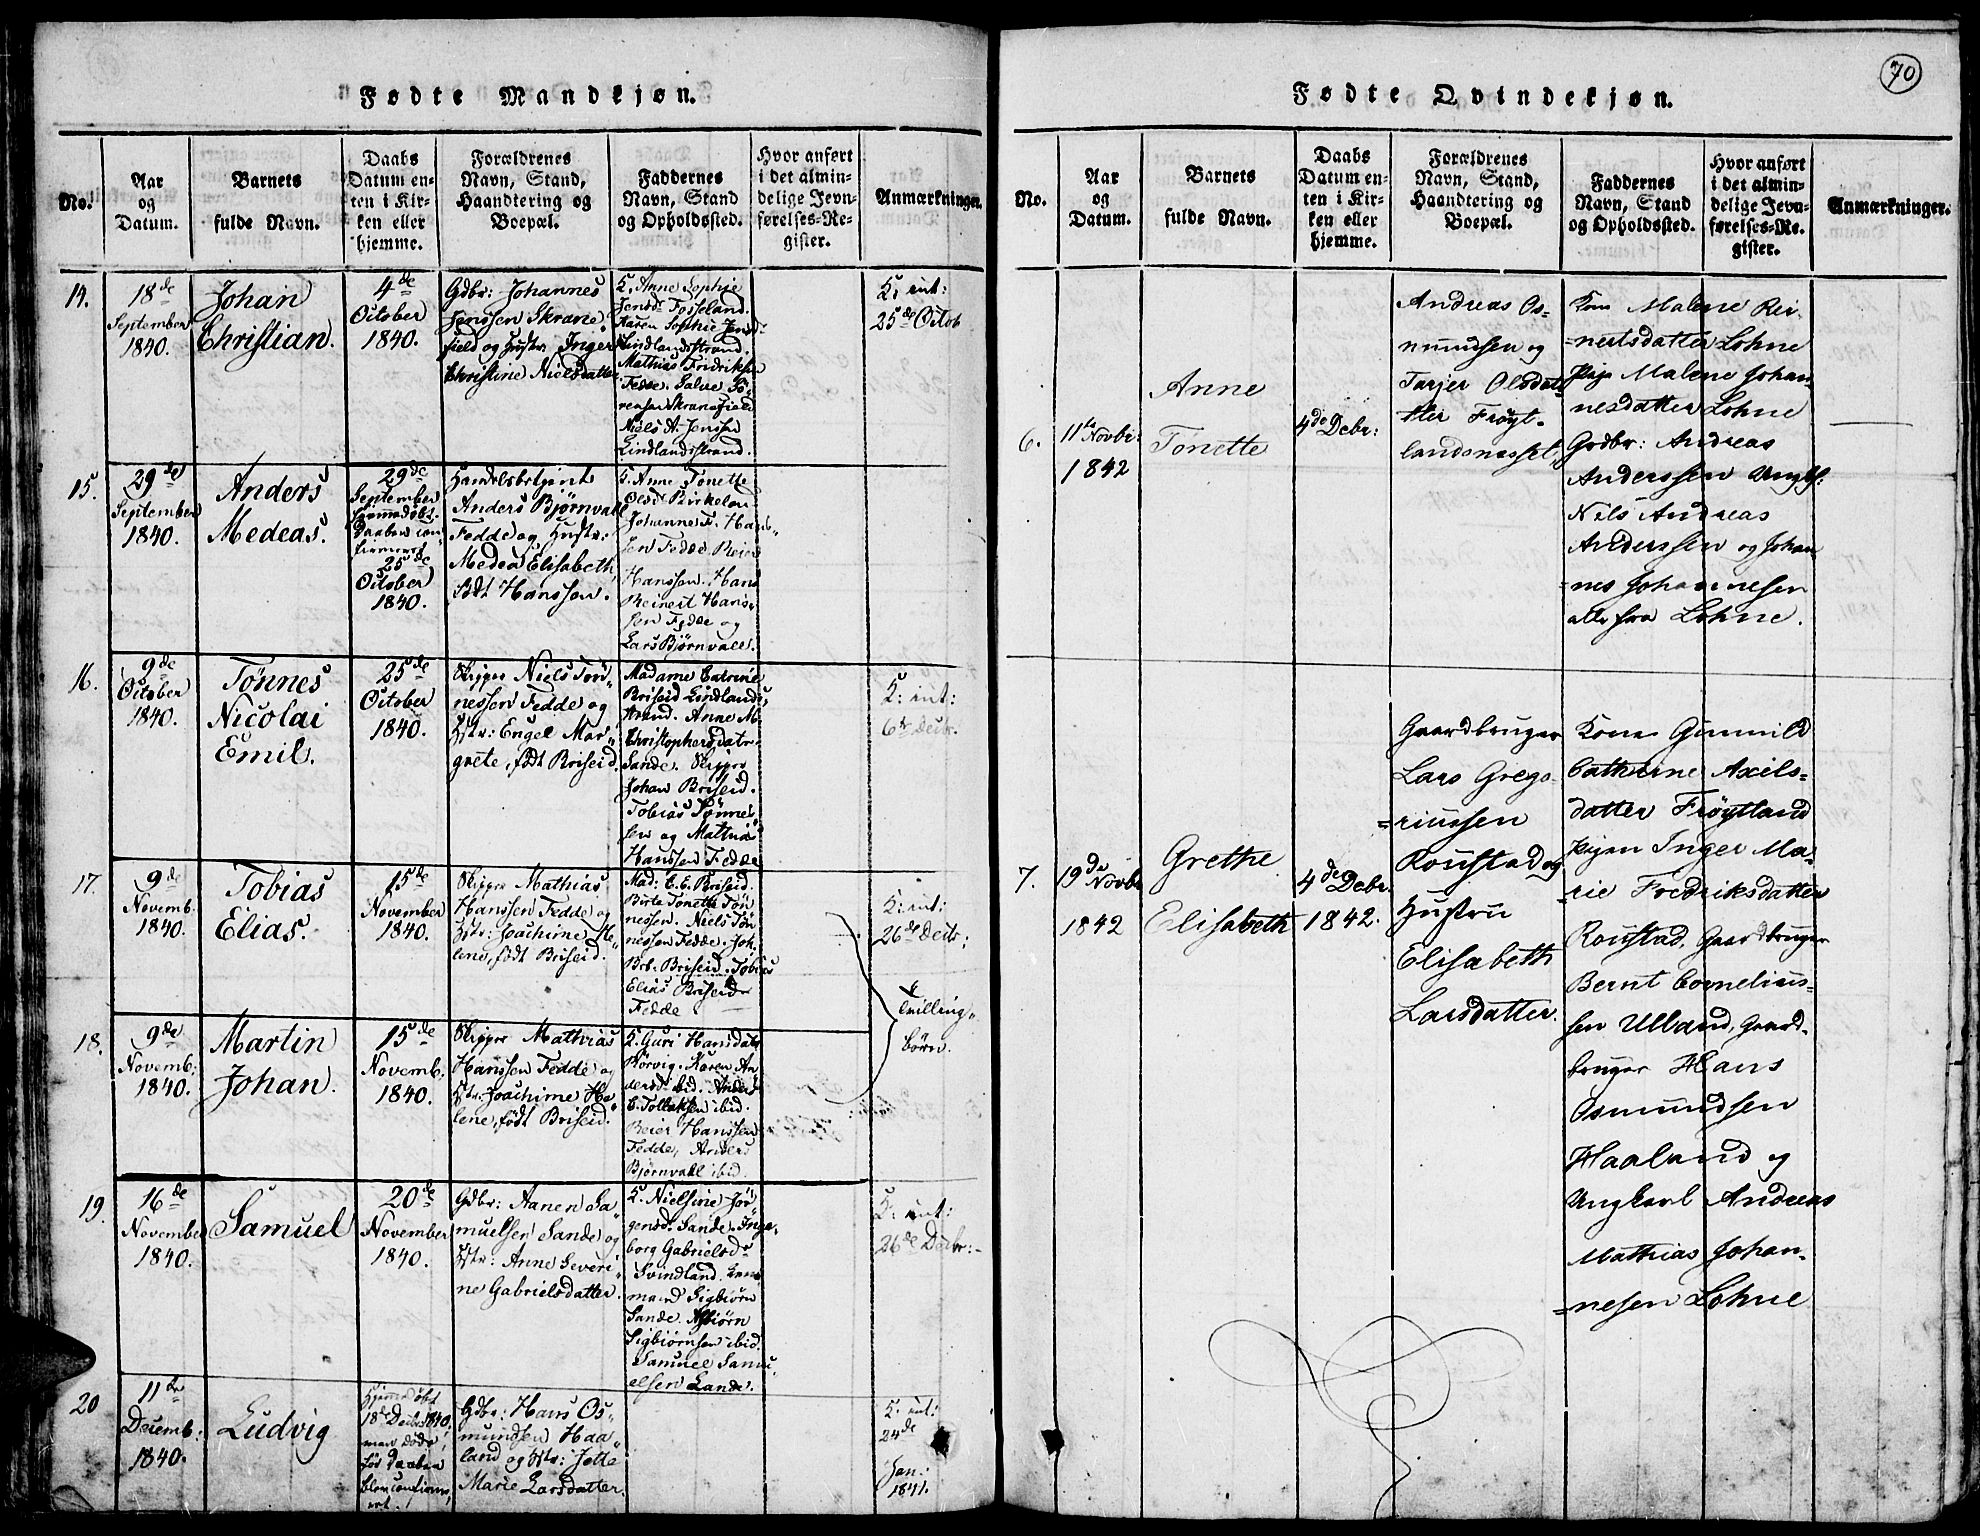 Fødte Mandkjøn.
No.
Aar
og
Datum.
Barnets
fulde Navn.
Daabs
Datum en-
ten i Kir-
ken eller
hjemme.
Forældrenes
Navn, Stand,
Haandtering og
Boepæl.
Faddernes
Navn, Stand
og Opholdssted.
Hvor anført
i det almin-
delige Jevn-
førelses-Re-
gister.
Anmærkninger.
14.
18de
September
1840.
Johan
Christian.
4de
October
1840.
Gdbr: Johannes
Jenssen Skrane-
field og Hustr. Inger
Christine Nielsdatter
K. Anne Sophie
Jensd. Fosseland.
Karen Sophie Jensd.
Lindlandsstrand.
Mathias Fredriksen
Fedde. Salve Sö-
rensen Skranefield
Niels A. Jenssen
Lindlandsstrand.
K. int:
25de Octob
15.
29de
September
1840.
Anders
Medeas.
29de
September
hjemmedøbt.
Daaben con-
firmeret
25de
October
1840.
Handelsbetjent
Anders Bjørnvall
Fedde og Hustr:
Medea Elisabeth,
født Hanssen.
K. Anne Tonette
Olsdt. Birkeland
Johanne F. Hans-
sen Fedde. Reier
Hanssen. Hans
Reinert Hans-
sen Fedde og
Lars Bjørnvall.
16.
9de
October
1840.
Tønnes
Nicolai
Emil.
25de
October
1840.
Skipper Niels Tön-
nessen Fedde og
Hstr: Engel Mar-
grete, født Briseid.
Madame Catrine
Briseid Lindlands-
strand. Anne M.
Christophersdatr.
Sande. Skipper
Johan Briseid.
Tobias Tønnes-
sen og Mathias
Hanssen Fedde
K: int:
6te Decbr.
17.
9de
Novemb.
1840.
Tobias
Elias.
15de
November
1840.
Skipper Mathias
Hanssen Fedde og
Hstr: Joachime He-
lene, født Briseid.
Mad: C. E. Briseid.
Birte Tonette Tön
nessen. Niels Tön
nessen Fedde. Joh.
Brb. Briseid. Tobias
Elias Briseid
Fedde
K: int:
26de Decbr;
Tvilling-
børn.
18.
9de
Novemb:
1840.
Martin
Johan.
15de
Novemb:
1840.
Skipper Mathias
Hanssen Fedde og
Hstr. Joachime He-
lene, født Briseid.
K. Guri Hansdatr
Rörvig. Karen An
dersd. ibid. Anders
C. Tollaksen ibid.
Reier Hanssen
Fedde, Anders
Bjørnvall ibid.
19.
16de
November
1840.
Samuel
20de
November
1840.
Gdbr: Aanen Sa-
muelsen Sande og
Hstr: Anne Severi-
ne Gabrielsdatter.
K. Nielsine Jör-
gensd. Sande. Inge-
borg Gabrielsdr
Svindland. Enke-
mand Sigbiørn
Sande. Asbiørn
Sigbiørnsen ibid.
Samuel Samu-
elsen Sande.
K: int:
26de Decbr:
20
11te
Decemb:
1840.
Ludvig
Hjemmedöbt
18de Decbr 1840,
men døde,
før Daaben
blev confirme-
ret.
Gdbr: Hans Os-
mundsen Haa-
land og Hstr: Jette
Marie Larsdatter.
K. int:
24de
Jan.
1841.
70
Fødte Qvindekjøn.
No.
Aar
og
Datum.
Barnets
fulde Navn.
Daabs
Datum en-
ten i Kir-
ken eller
hjemme.
Forældrenes
Navn, Stand,
Haandtering og
Boepæl.
Faddernes
Navn, Stand
og Opholdssted.
Hvor anført
i det almin-
delige Jevn-
førelses-Re-
gister.
Anmærkninger.
6.
11te Novbr:
1842
Anne
Tonette
4de Debr:
Andreas Os-
mundsen og
Tarjer Olsdat-
ter Fröyt-
landsnesset,
Kone Malene Rei-
nertsdatter Lohne
Pige Malene Johan
nesdatter Lohne
Grdbr: Andreas
Anderssen Ungk:
Nils Andreas
Anderssen og Johan
nes Johannesen
alle fra Lohne.
7.
19de Novbr
1842
Grethe
Elisabeth
4de Debr.
1842.
Gaardbruger
Lars Grego-
riussen
Roustad og
Hustru
Elisabeth
Larsdatter.
Kone Gunnild
Cathrine Axels-
datter Fröytland
Pigen Inger Ma-
rie Fredriksdatter
Roustad, Gaardbruger
Bernt Cornelius-
sen Ulland, Gaard-
bruger Hans
Osmundsen
Haaland og
Ungkarl Andreas
Mathias Johan-
nesen Lohne